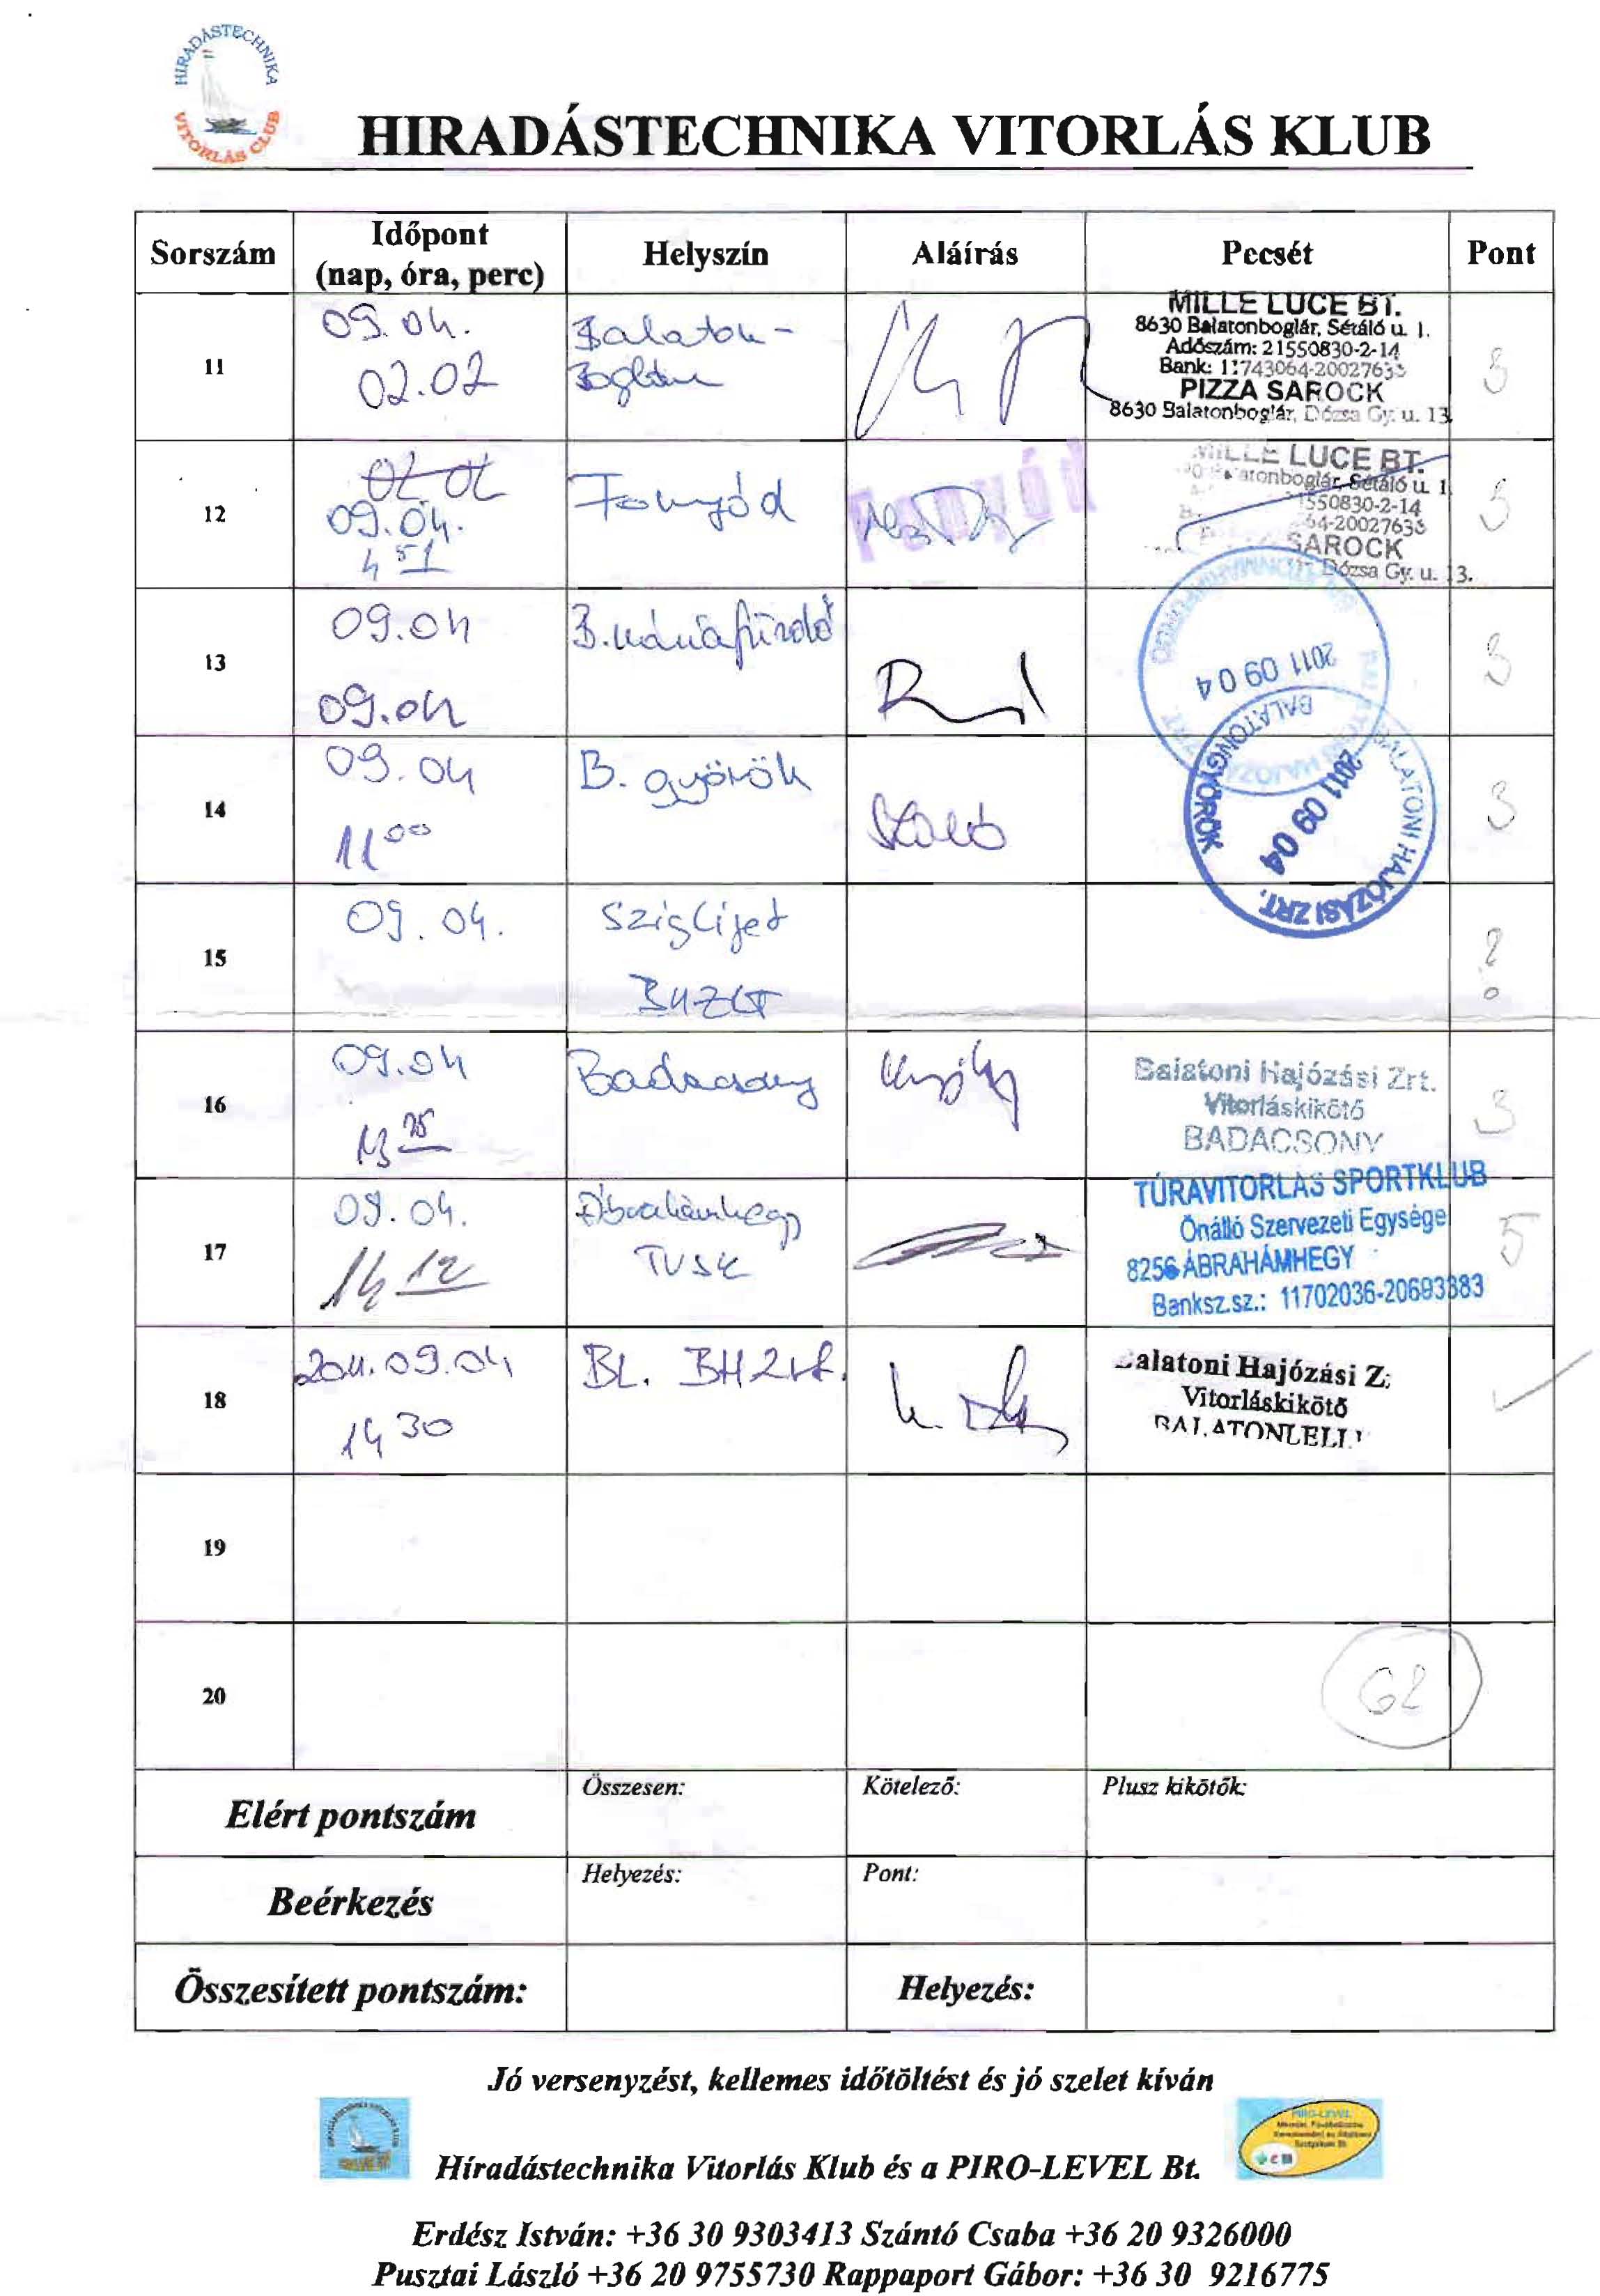 HIRADÁSTECHNIKA
VITORLÁS CLUB
HIRADÁSTECHNIKA VITORLÁS KLUB
Sorszám Időpont (nap, óra, perc) Helyszín Aláírás Pecsét Pont
11 09.04. 02.02 Balaton-
Boglár 3
MILLE LUCE BT.
8630 Balatonboglár, Sétáló u. 1.
Adószám: 21550830-2-14
Bank: 11743064-20027633
PIZZA SAROCK
8630 Balatonboglár, Dózsa Gy. u. 13.
12 09.04. 4 51 Fonyód Fonyód 3
MILLE LUCE BT.
atonboglár, Sétáló u. 1
550830-2-14
64-20027633
SAROCK
Dózsa Gy. u. 13.
13 09.04 09.04 B.máriafürdő 3
2011 09 04
14 09.04 11 00 B. györök 3
BALATONI HAJÓZÁSI ZRT.
BALATONGYÖRÖK
2011 09 04
15 09.04. Szigliget
BHZRT ?
16 09.04 13 25 Badacsony 3
Balatoni Hajózási Zrt.
Vitorláskikötő
BADACSONY
17 09.04. 14 12 Ábrahámhegy
TVSK 5
TÚRAVITORLÁS SPORTKLUB
Önálló Szervezeti Egysége
8256 ÁBRAHÁMHEGY
Banksz.sz.: 11702036-20693383
18 2011.09.04 14 30 BL. BHZrt.
Balatoni Hajózási Z
Vitorláskikötő
BALATONLELL
19
20 62
Elért pontszám Összesen: Kötelező: Plusz kikötők:
Beérkezés Helyezés: Pont:
Összesített pontszám: Helyezés:
Jó versenyzést, kellemes időtöltést és jó szelet kíván
Híradástechnika Vitorlás Klub és a PIRO-LEVEL Bt.
PIRO-LEVEL
Erdész István: +36 30 9303413 Szántó Csaba +36 20 9326000
Pusztai László +36 20 9755730 Rappaport Gábor: +36 30 9216775